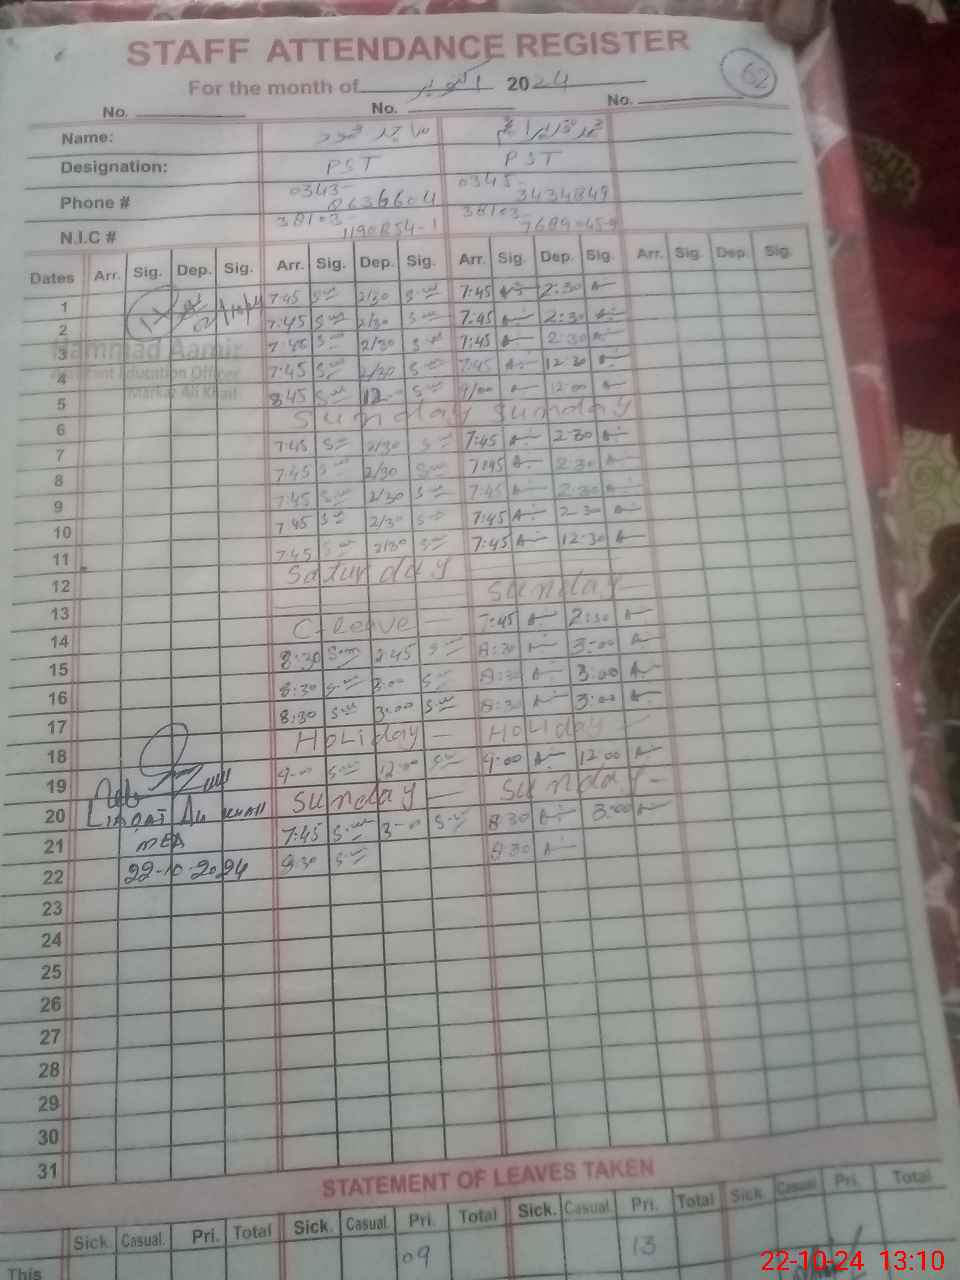 STAFF ATTENDANCE REGISTER
For the month of اکتوبر 2024
62
No. No. No.
Name: ساجد محمود محمد
Designation: PST PST
Phone # 0343- 0345-
8636604 3434849
N.I.C # 38103- 38103-
Dates Arr. Sig. Dep. Sig. Arr. Sig. Dep. Sig. Arr. Sig. Dep. Sig. Arr. Sig. Dep. Sig.
1 7:45 2/30 7:45 2:30
2 7:45 2/30 7:45 2:30
3 7:45 2/30 7:45 2:30
Hammad Aamir
4 7:45 2/30 7:45 12:30
Assistant Education Officer
Markaz Ali Khail
5 8:45 12 9/00 12:00
6 Sunday Sunday
7 7:45 2/30 7:45 2:30
8 7:45 2/30 7:45 2:30
9 7:45 2/30 7:45 2:30
10 7:45 2/30 7:45 2:30
11 7:45 2/30 7:45 12:30
12 Saturday
13 Sunday
14 C-leave 7:45 2:30
15 8:30 2:45 8:30 3:00
16 8:30 3:00 8:30 3:00
17 8:30 3:00 8:30 3:00
18 Holiday Holiday
19 9:00 12:00 9:00 12:00
20 Sunday Sunday
LIAQAT ALI KHAN
21 MEA 7:45 3:00 8:30 3:00
22 22-10-2024 8:30 8:30
23
24
25
26
27
28
29
30
31
STATEMENT OF LEAVES TAKEN
Sick. Casual. Pri. Total Sick. Casual. Pri. Total Sick. Casual. Pri. Total Sick. Casual. Pri. Total
This 09 13
22-10-24 13:10